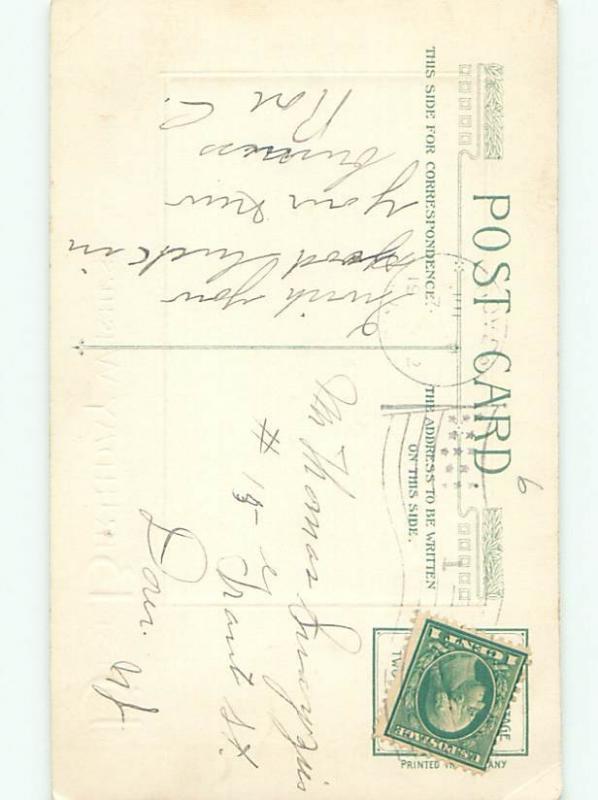 POST CARD
THIS SIDE FOR CORRESPONDENCE.
THE ADDRESS TO BE WRITTEN
ON THIS SIDE.
6
I wish you
good luck in
your new
business
Rae C.
Mr Thomas
# 15
Grant St.
Dover. NJ
U.S. POSTAGE
1 CENT 1
PRINTED IN GERMANY